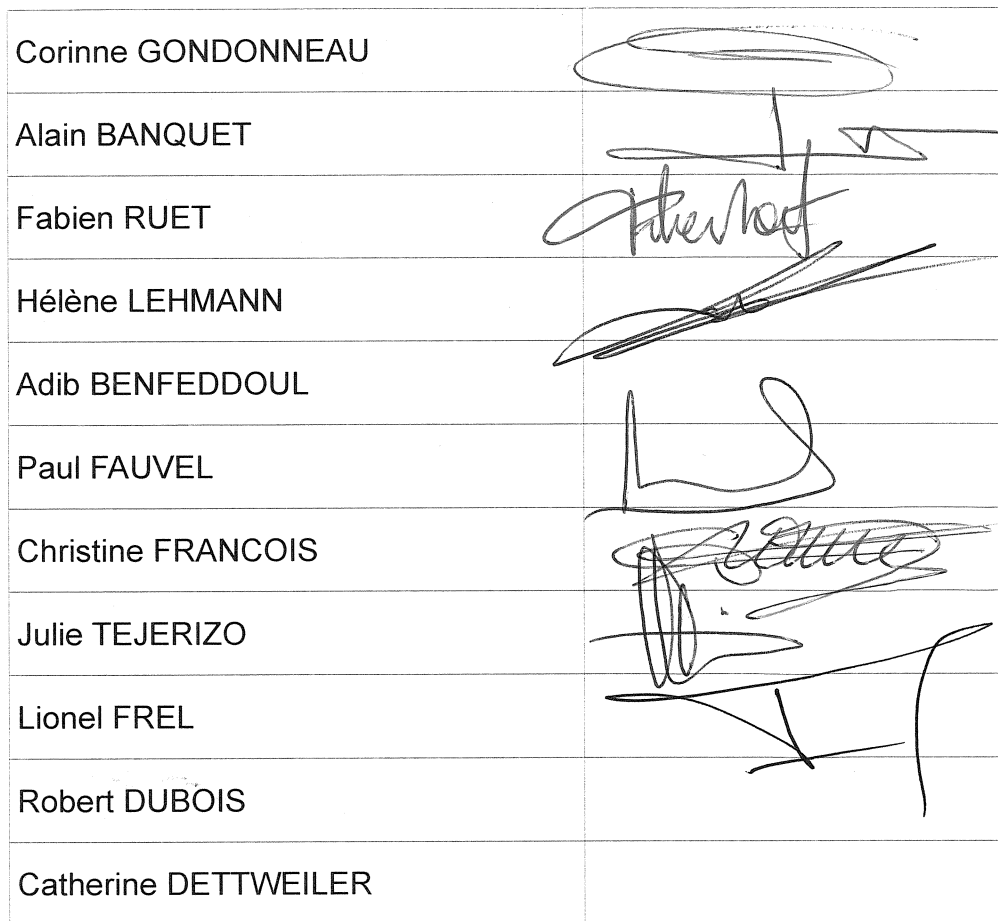 Corinne GONDONNEAU
Alain BANQUET
Fabien RUET
Hélène LEHMANN
Adib BENFEDDOUL
Paul FAUVEL
Christine FRANCOIS
Julie TEJERIZO
Lionel FREL
Robert DUBOIS
Catherine DETTWEILER